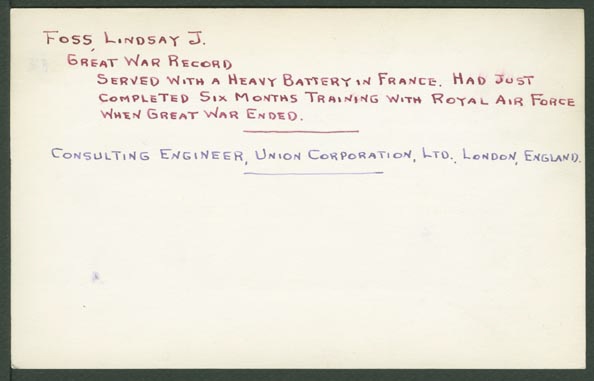 Foss, Lindsay J.
Great War Record
Served with a Heavy Battery in France. Had just
completed Six Months Training with Royal Air Force
when Great War Ended.
Consulting Engineer, Union Corporation, Ltd., London, England.